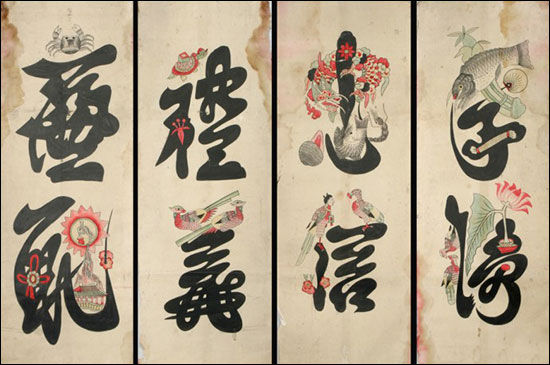 孝悌
忠信
禮義
廉恥